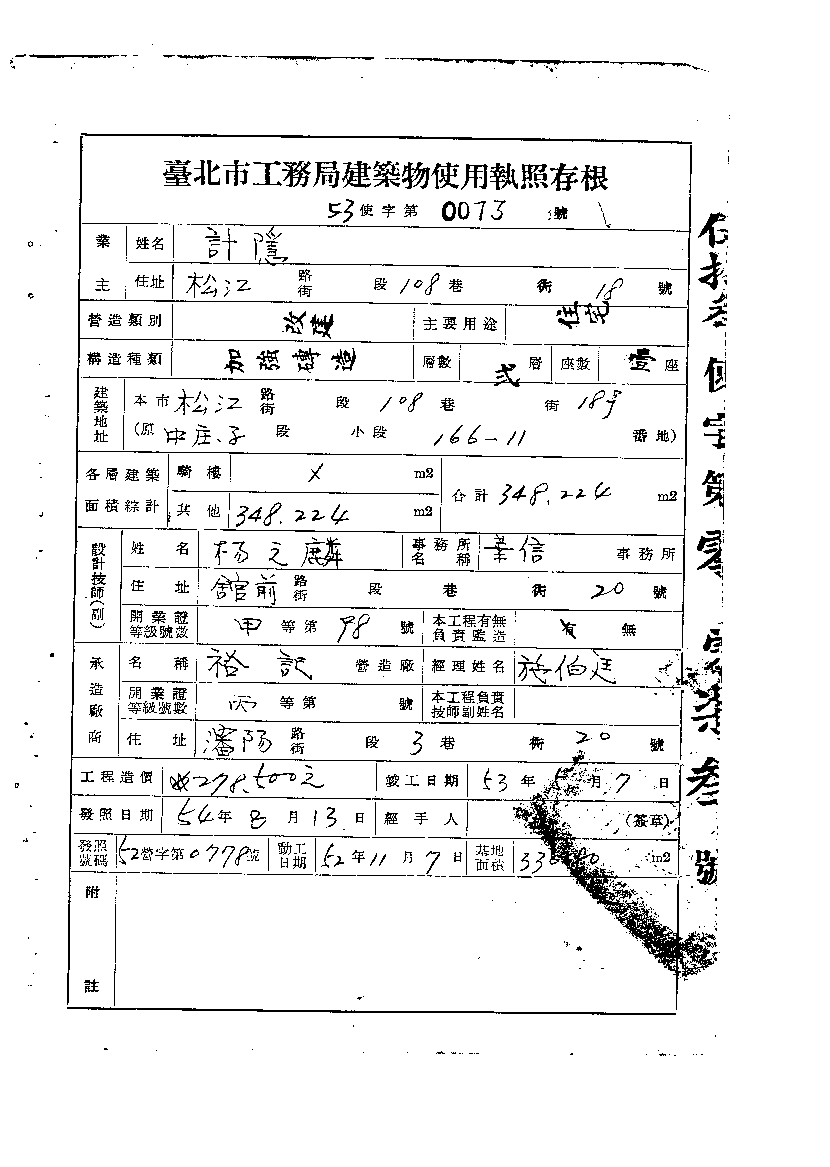 臺北市工務局建築物使用執照存根
53使字第 0073 號
業主 姓名 計隱
住址 松江 路街 段 108 巷 街 18 號
營造類別 改建 主要用途 住宅
構造種類 加強磚造 層數 弍 層 座數 壹 座
建築地址 本市 松江 路街 段 108 巷 街 18号
(原 中庄子 段 小段 166-11 番地)
各層建築面積綜計 騎樓 X m2 合計 348.224 m2
其他 348.224 m2
設計技師(副) 姓名 楊元麟 事務所名稱 華信 事務所
住址 舘前 路街 段 巷 街 20 號
開業證等級號數 甲 等第 98 號 本工程有無負責監造 有 無
承造廠商 名稱 裕記 營造廠 經理姓名 施伯廷
開業證等級號數 丙 等第 號 本工程負責技師副姓名
住址 瀋陽 路街 段 3 巷 街 20 號
工程造價 278,500元 竣工日期 53 年 月 7 日
發照日期 54 年 8 月 13 日 經手人 (簽章)
發照號碼 52營字第0778號 動工日期 52 年 11 月 7 日 基地面積 m2
附註
使字第零零柒叁號